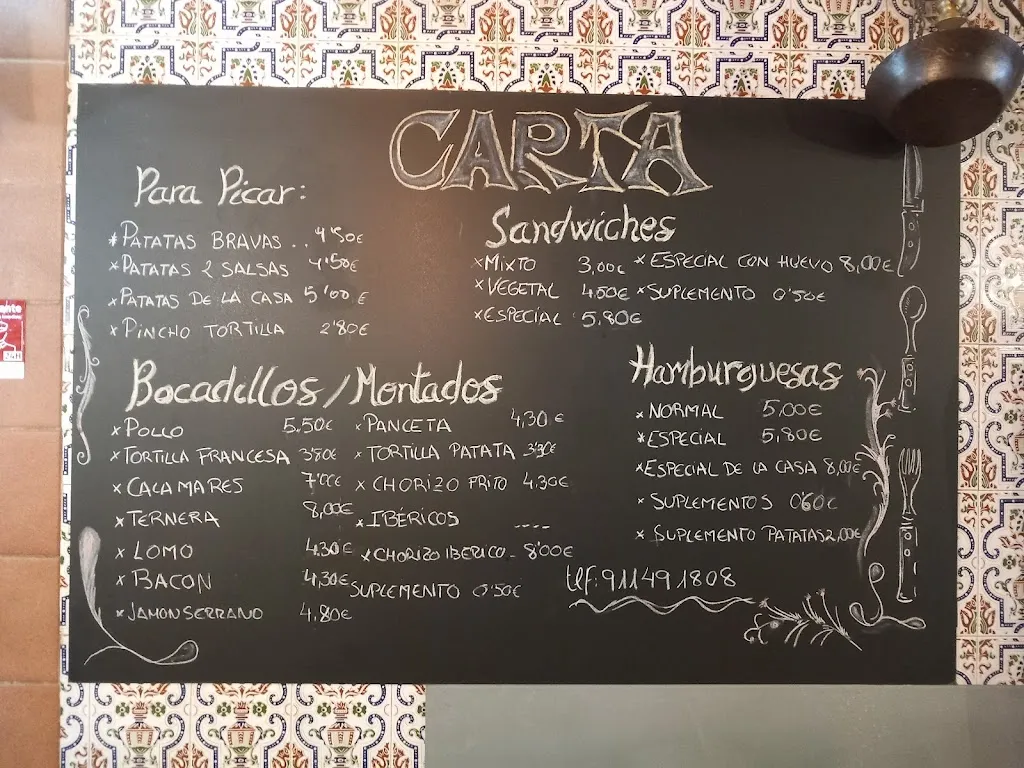 CARTA
Para Picar:
* PATATAS BRAVAS .. 4'50€
x PATATAS 2 SALSAS 4'50€
x PATATAS DE LA CASA 5'00€
x PINCHO TORTILLA 2'80€
Sandwiches
x MIXTO 3,00€
x VEGETAL 4.50€
x ESPECIAL 5,80€
x ESPECIAL CON HUEVO 8,00€
x SUPLEMENTO 0'50€
Bocadillos/Montados
x POLLO 5.50€
x TORTILLA FRANCESA 3'80€
x CALAMARES 7'00€
x TERNERA 8,00€
x LOMO 4,30€
x BACON 4,30€
x JAMON SERRANO 4.80€
x PANCETA 4,30€
x TORTILLA PATATA 3'30€
x CHORIZO FRITO 4.30€
x IBÉRICOS ----
x CHORIZO IBERICO - 8'00€
SUPLEMENTO 0'50€
Hamburguesas
x NORMAL 5,00€
* ESPECIAL 5,80€
x ESPECIAL DE LA CASA 8,00€
x SUPLEMENTOS 0'60€
x SUPLEMENTO PATATAS 2,00€
tlf: 911491808
24H